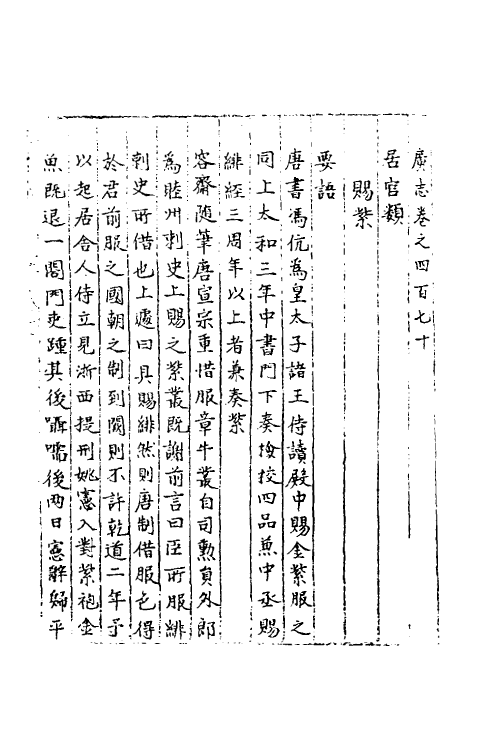 廣志卷之四百七十
居官類
賜紫
要語
唐書馮伉為皇太子諸王侍讀殿中賜金紫服之
同上太和三年中書門下奏撿挍四品兼中丞賜
緋經三周年以上者兼奏紫
容齋随筆唐宣宗重惜服章牛叢自司勲貟外郎
為睦州刺史上賜之紫叢既謝前言曰臣所服緋
刺史所借也上遽曰具賜緋然則唐制借服色得
於君前服之國朝之制到闕則不許乾道二年予
以起居舎人侍立見浙西提刑姚憲入對紫袍金
魚既退一閤門吏踵其後囁嚅後两日憲辭歸平